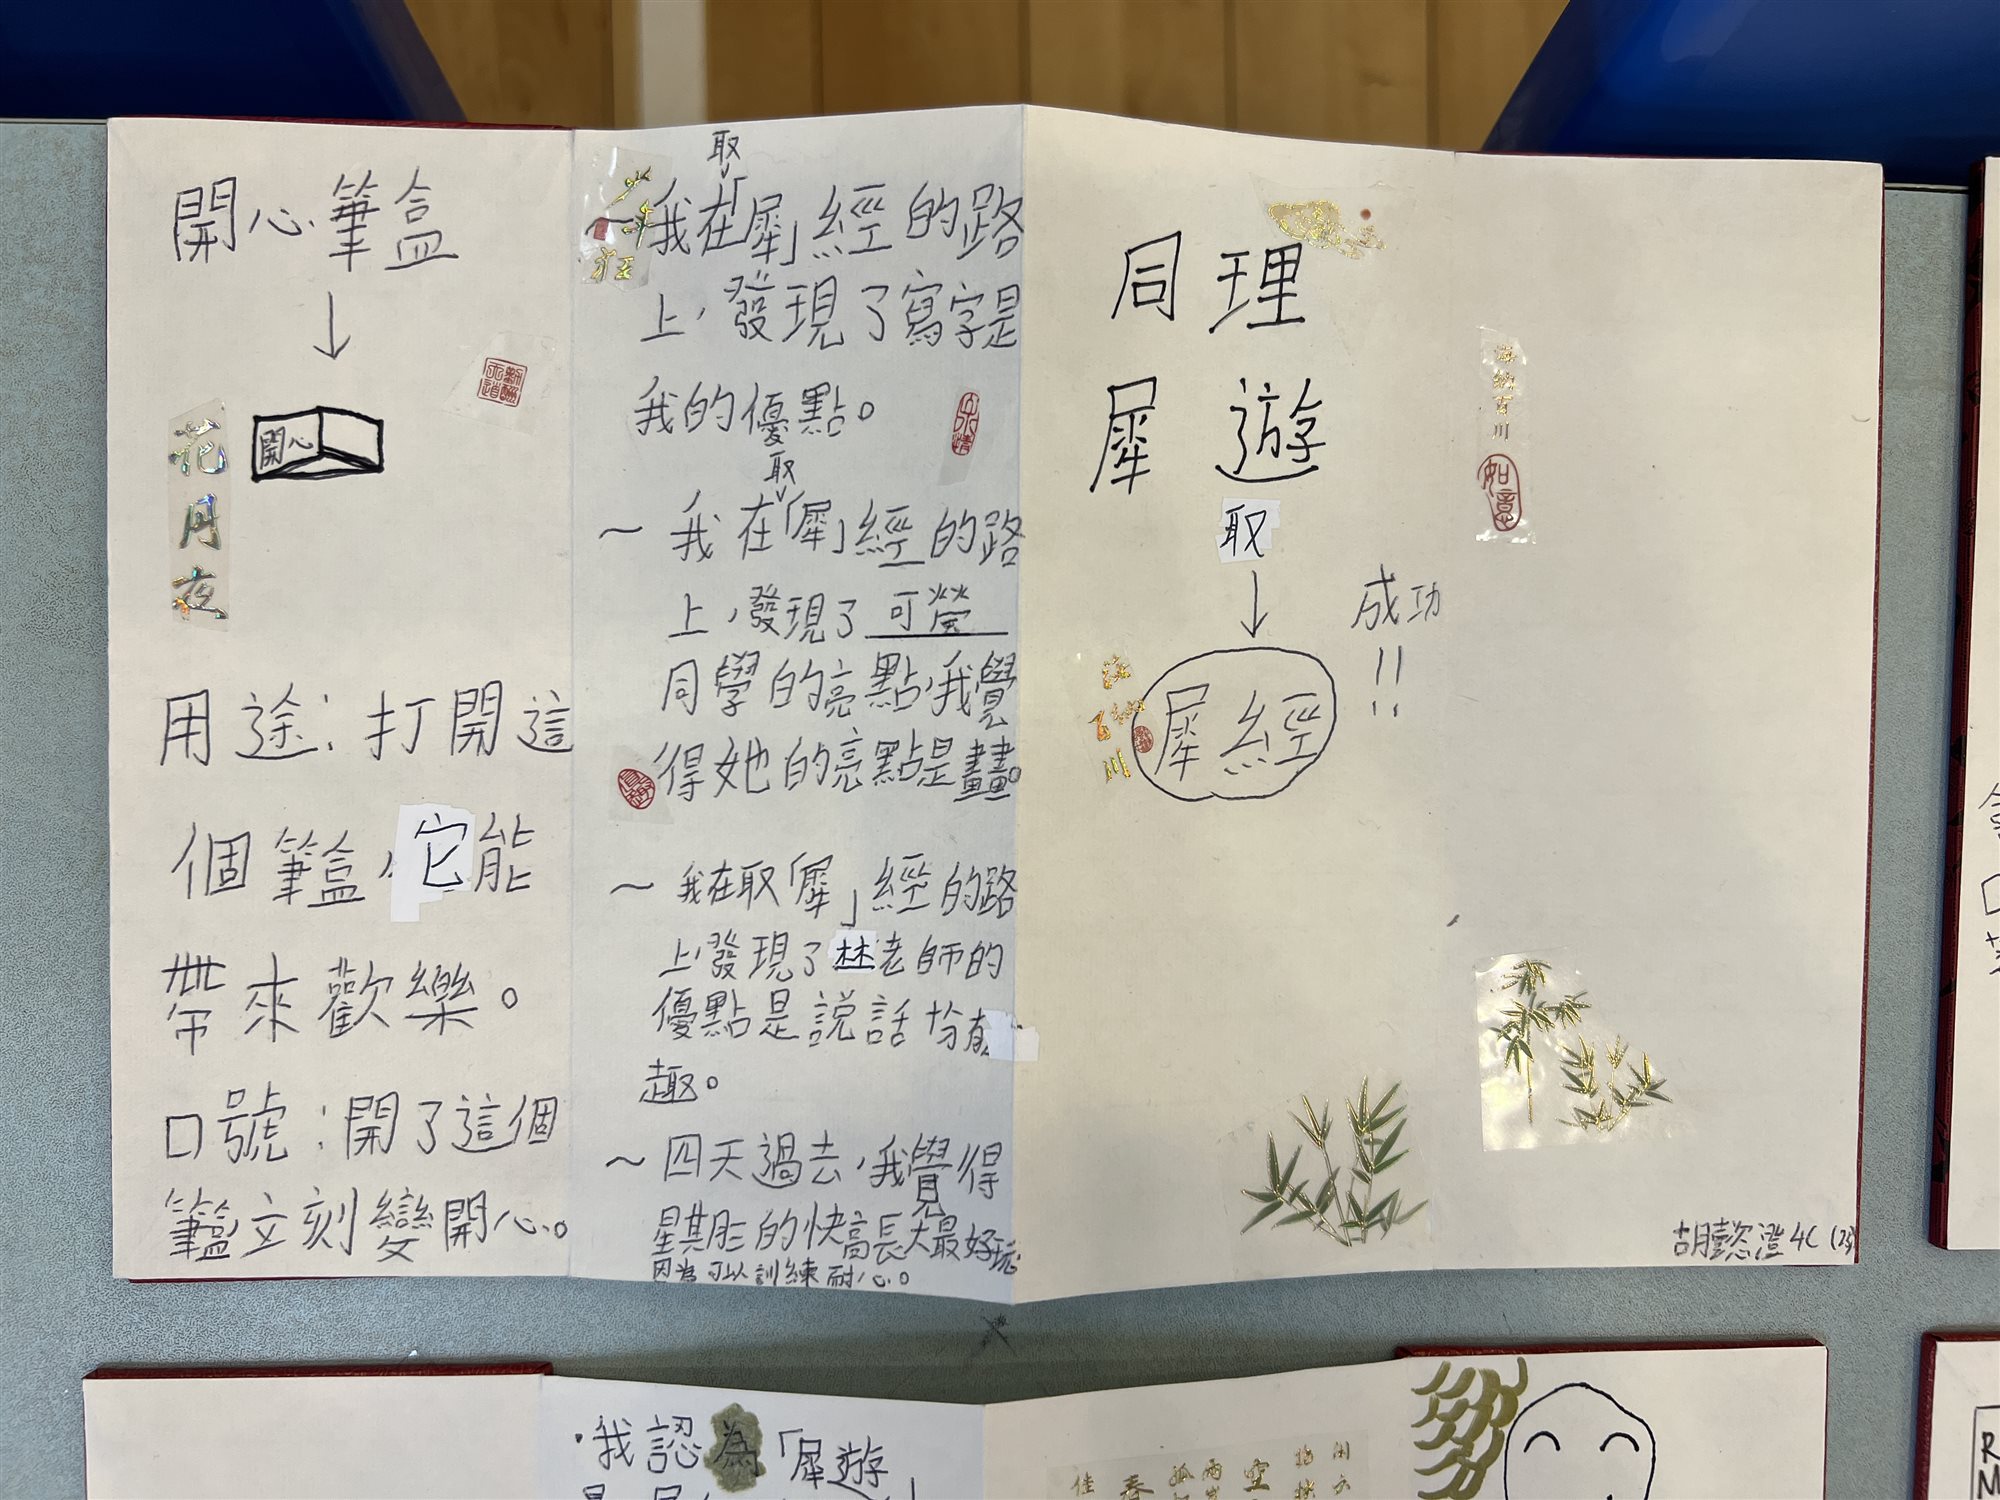 開心筆盒
↓
開心
花月夜
用途：打開這
個筆盒，它能
帶來歡樂。
口號：開了這個
筆盒立刻變開心。
取
～我在「犀」經的路
上，發現了寫字是
我的優點。
取
～我在「犀」經的路
上，發現了可瑩
同學的亮點，我覺
得她的亮點是畫畫。
～我在取「犀」經的路
上，發現了林老師的
優點是説話十分有
趣。
～四天過去，我覺得
的快高長大最好玩
因為可以訓練耐心。
同理
犀遊
取
↓
犀經
成功
!!
海納百川
如意
百川
胡懿澄4C(23)
·我認為「犀遊